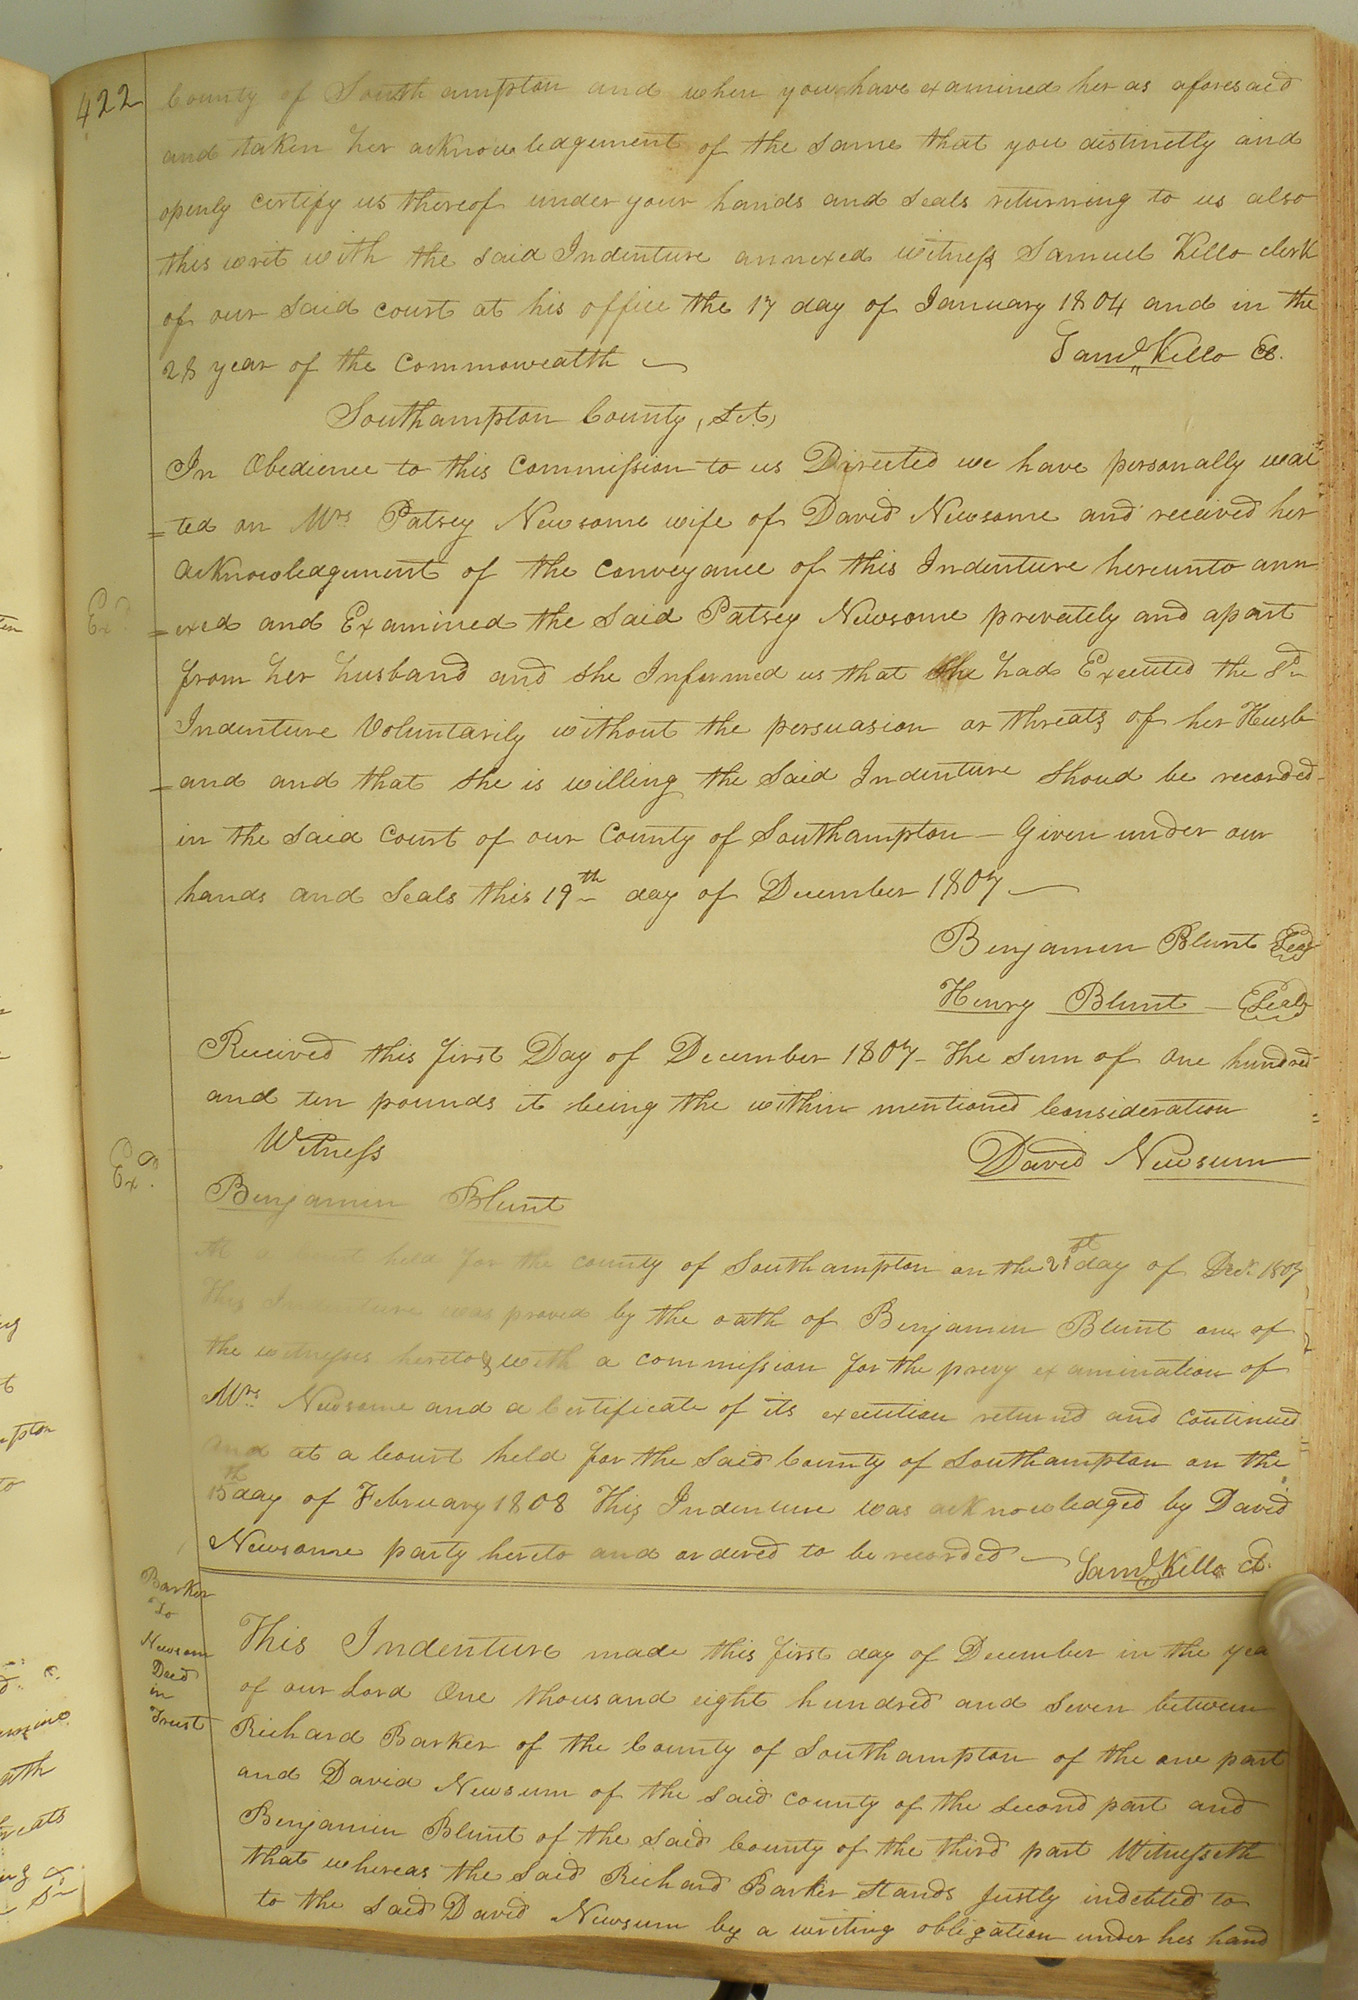 422
County of Southampton and when you have examined her as aforesaid
and taken her acknowledgement of the same that you distinctly and
openly certify us thereof under your hands and seals returning to us also
this writ with the said Indenture annexed witness Samuel Kello clerk
of our said court at his office the 17 day of January 1804 and in the
28 year of the Commowealth
Saml. Kello Cl.
Southampton County, Sct,
In Obedience to this Commission to us Directed we have personally wai
=ted on Mrs Patsey Newsome wife of David Newsome and received her
acknowledgement of the conveyance of this Indenture hereunto ann
=exed and Examined the said Patsey Newsome prevately and apart
from her husband and she Informed us that she had Executed the sd.
Indenture Voluntarily without the persuasion or threats of her Husb
=and and that she is willing the said Indenture shoud be recorded
in the said Court of our County of Southampton - Given under our
hands and seals this 19th day of December 1807
Benjamin Blunt Seal
Henry Blunt - Seal
Received this first Day of December 1807 - the sum of one hundred
and ten pounds it being the within mentioned Consideration
Witness
David Newsum
Exd.
Benjamin Blunt
At a Court held for the county of Southampton on the 21st day of Decr. 1807
This Indenture was proved by the oath of Benjamin Blunt one of
the witnesses hereto & with a commission for the prevy examination of
Mrs. Newsome and a Certificate of its execution returnd and continued
and at a Court held for the said County of Southampton on the
15th day of February 1808 This Indenture was acknowledged by David
Newsome party hereto and ordered to be recorded
Saml. Kello Cl.
Barker
To
Newsom
Deed
in
Trust
This Indenture made this first day of December in the yea
of our Lord One thousand eight hundred and seven between
Richard Barker of the County of Southampton of the one part
and David Newsum of the said county of the second part and
Benjamin Blunt of the said County of the third part Witnesseth
that whereas the said Richard Barker stands justly indebted to
to the said David Newsum by a writing obligation under his hand